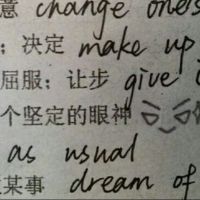 意 change one's
；决定 make up
屈服；让步 give
个坚定的眼神
as usual
某事 dream of